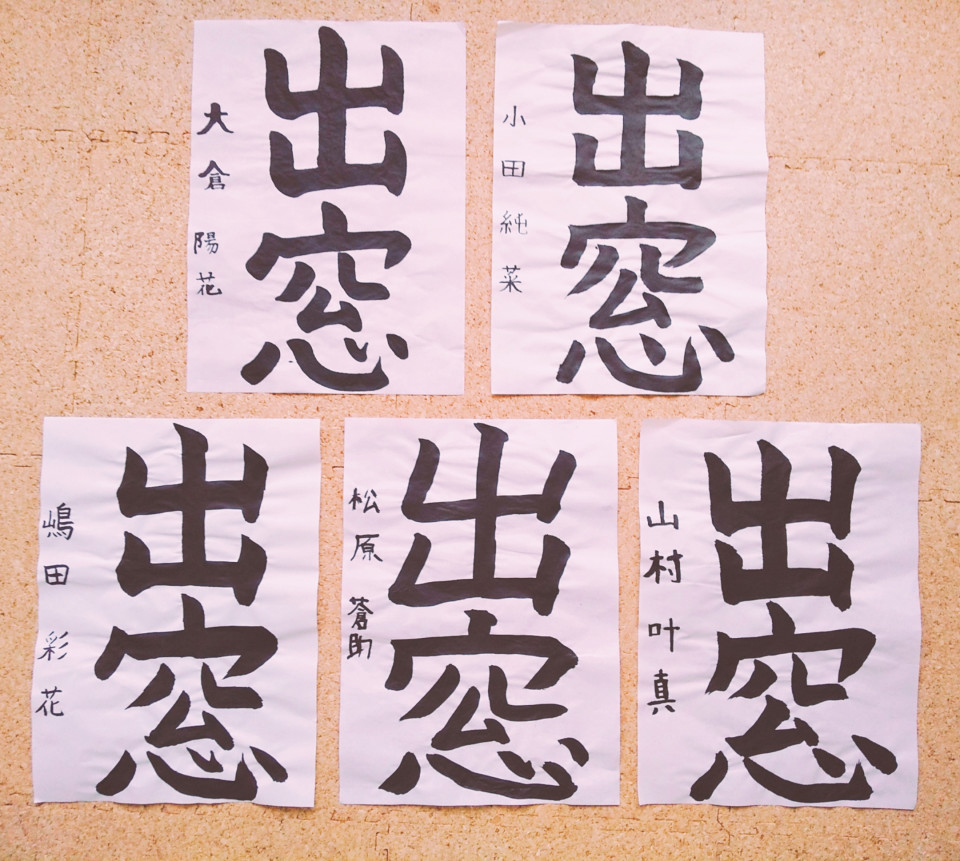 出窓
大倉陽花
出窓
小田純菜
出窓
嶋田彩花
出窓
松原蒼助
出窓
山村叶真